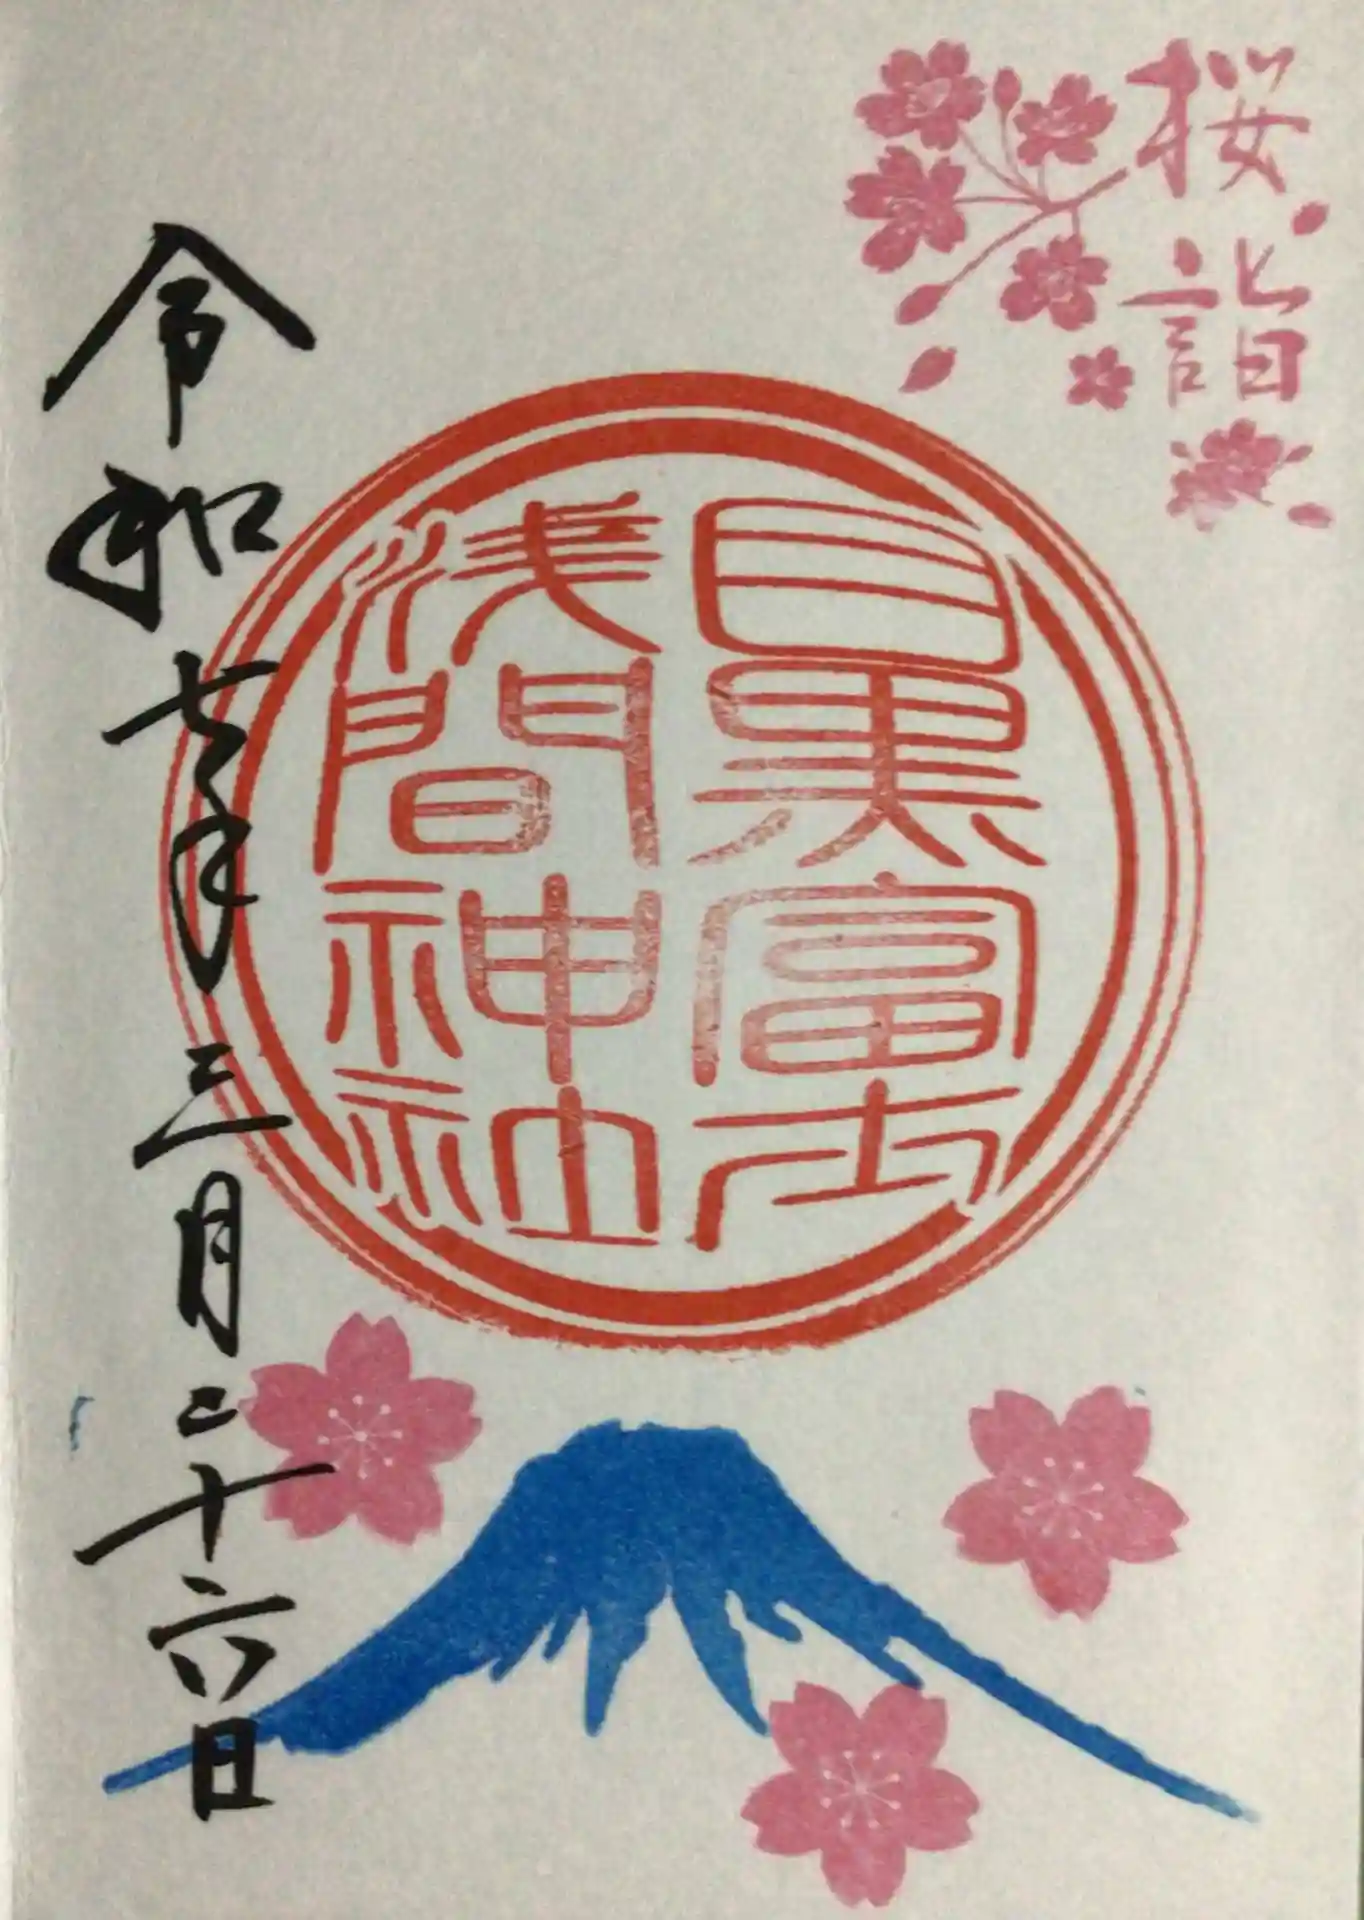 桜詣
目黒富士
浅間神社
令和七年三月二十六日